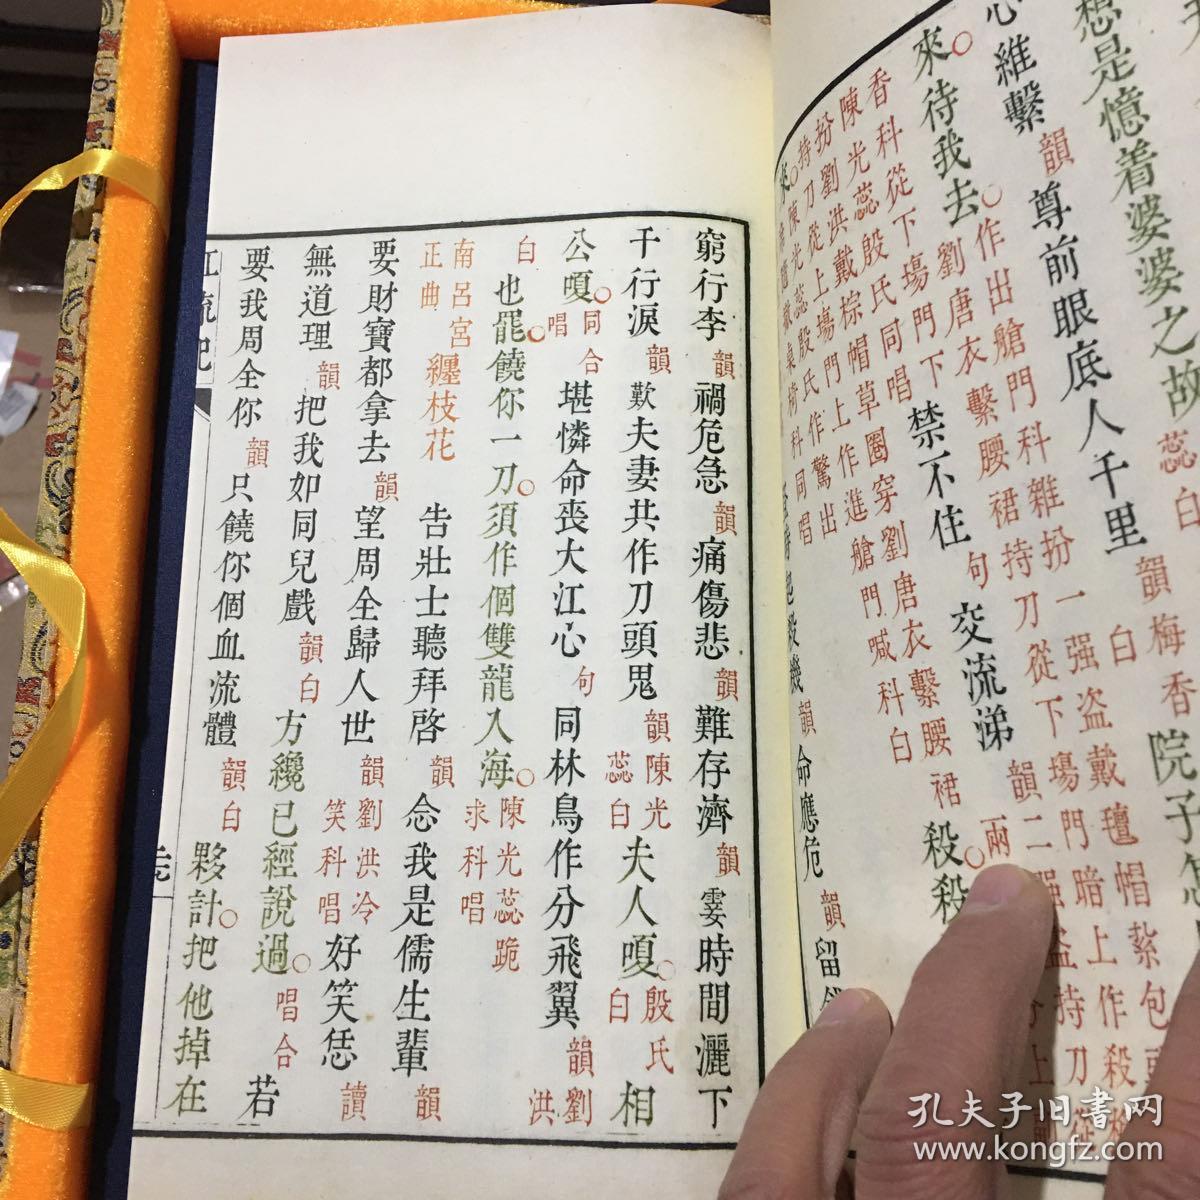 想是憶着婆婆之故蕊白
心維繫韻尊前眼底人千里韻梅香白院子怎
來。待我去。作出艙門科雜扮一强盗戴氊帽紮包
劉唐衣繫腰裙持刀從下場門暗上作殺梅
香科從下場門下
陳光蕊殷氏同唱禁不住句交流涕韻二强盗持刀從
扮劉洪戴棕帽草圈穿劉唐衣繫腰裙
持刀從上場門上作進艙門喊科白殺。殺
陳光蕊殷氏作驚出
隨撤桌椅科同唱
起殺機韻命應危韻留
窮行李韻禍危急韻痛傷悲韻難存濟韻霎時間灑下
千行淚韻歎夫妻共作刀頭鬼韻陳光蕊白夫人嗄。殷氏白相
公嗄。同唱合堪憐命喪大江心句同林鳥作分飛翼韻劉洪
白也罷。饒你一刀。須作個雙龍入海。陳光蕊跪求科唱
南呂宮正曲纏枝花告壯士聽拜啓韻念我是儒生輩韻
要財寶都拿去韻望周全歸人世韻劉洪冷笑科唱好笑恁讀
無道理韻把我如同兒戲韻白方纔已經說過。唱合若
要我周全你韻只饒你個血流體韻白夥計。把他掉在
江流記
孔夫子旧書网
www.kongfz.com